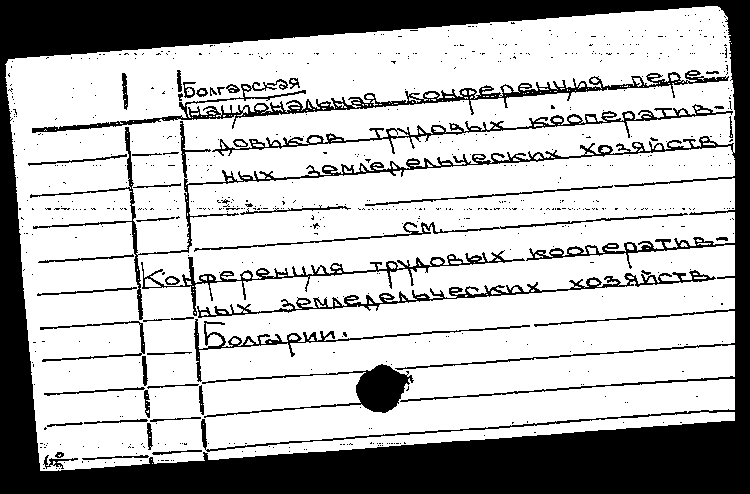 Болгарская
национальная конференция пере-
довиков трудовых кооператив-
ных земледельческих хозяйств
см.
Конференция трудовых кооператив-
ных земледельческих хозяйств
Болгарии.